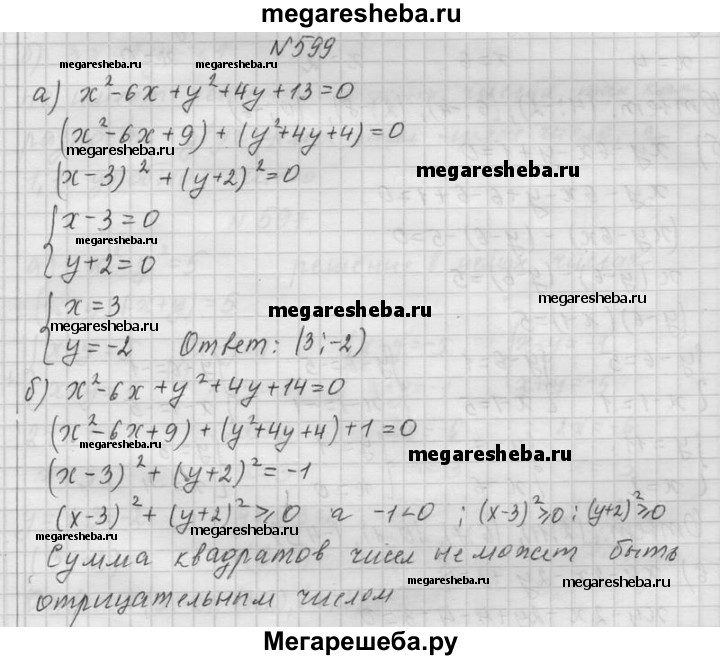 megaresheba.ru
№599
megaresheba.ru megaresheba.ru
а) x²-6x+y²+4y+13=0
(x²-6x+9)+(y²+4y+4)=0
megaresheba.ru
(x-3)²+(y+2)²=0 megaresheba.ru
x-3=0
megaresheba.ru
y+2=0
x=3 megaresheba.ru megaresheba.ru
megaresheba.ru
y=-2 Ответ: (3;-2)
б) x²-6x+y²+4y+14=0
(x²-6x+9)+(y²+4y+4)+1=0
megaresheba.ru megaresheba.ru
(x-3)²+(y+2)²=-1
(x-3)²+(y+2)²⩾0 а -1<0 ; (x-3)²⩾0; (y+2)²⩾0
megaresheba.ru megaresheba.ru
Сумма квадратов чисел не может быть
megaresheba.ru megaresheba.ru
отрицательным числом
Мегарешеба.ру